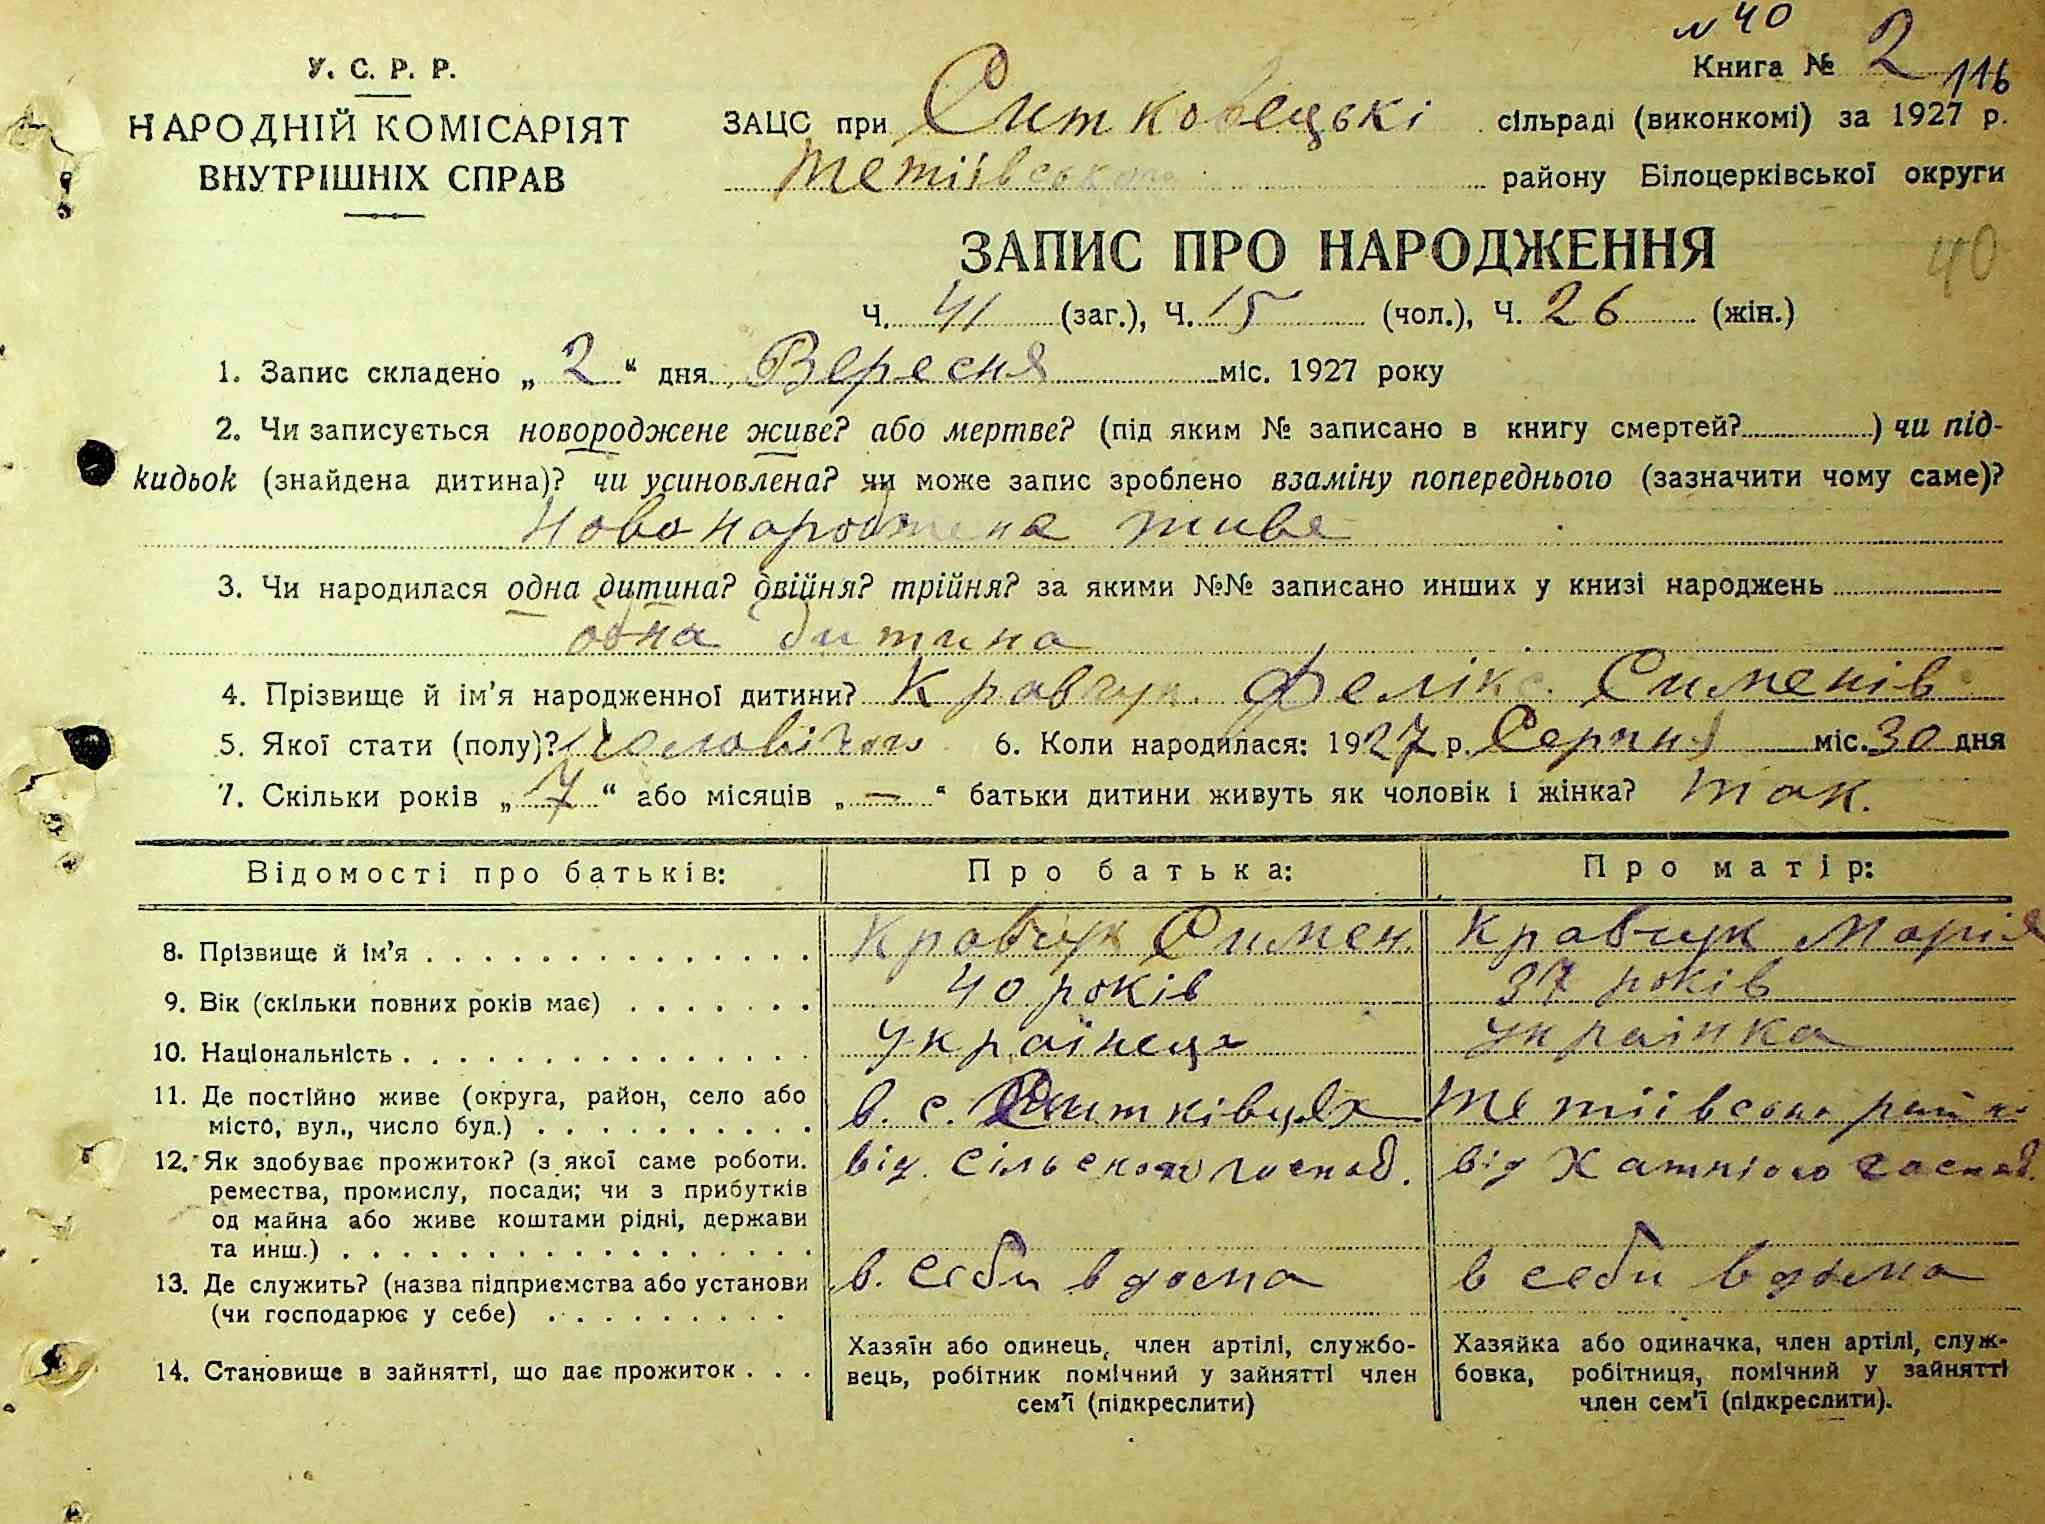 № 40
У. С. Р. Р.
Книга № 2 116
НАРОДНІЙ КОМІСАРІЯТ
ВНУТРІШНІХ СПРАВ
ЗАЦС при Ситковецькі сільраді (виконкомі) за 1927 р.
Тетіївського району Білоцерківської округи
ЗАПИС ПРО НАРОДЖЕННЯ
40
Ч. 41 (заг.), Ч. 15 (чол.), Ч. 26 (жін.)
1. Запис складено „ 2 “ дня Вересня міс. 1927 року
2. Чи записується новороджене живе? або мертве? (під яким № записано в книгу смертей?) чи під-
кидьок (знайдена дитина)? чи усиновлена? чи може запис зроблено взаміну попереднього (зазначити чому саме)?
Новонароджена живе
3. Чи народилася одна дитина? двійня? трійня? за якими №№ записано инших у книзі народжень
одна дитина
4. Прізвище й ім’я народженної дитини? Кравчук Фелікс Сименів
5. Якої стати (полу)? Чоловічого 6. Коли народилася: 1927 р. Серпня міс. 30 дня
7. Скільки років „ 7 “ або місяців „ — “ батьки дитини живуть як чоловік і жінка? так.
Відомості про батьків: Про батька: Про матір:
8. Прізвище й ім’я Кравчук Симен Кравчук Марія
9. Вік (скільки повних років має) 40 років 37 років
10. Національність Українець Українка
11. Де постійно живе (округа, район, село або
місто, вул., число буд.) в. с. Ситківцях Тетіївського
12. Як здобуває прожиток? (з якої саме роботи. від сільського господ. від Хатнього господ.
ремества, промислу, посади; чи з прибутків
од майна або живе коштами рідні, держави
та инш.)
13. Де служить? (назва підприємства або установи в себи вдома в себи вдома
(чи господарює у себе)
14. Становище в зайнятті, що дає прожиток
Хазяїн або одинець, член артілі, службо-
вець, робітник помічний у зайнятті член
сем’ї (підкреслити)
Хазяйка або одиначка, член артілі, служ-
бовка, робітниця, помічний у зайнятті
член сем’ї (підкреслити).